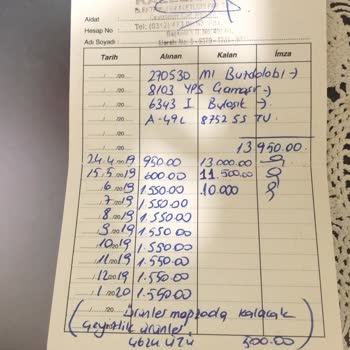 Aidat :
Hesap No :
Adı Soyadı :
Tarih Alınan Kalan İmza
270530 MI Buzdolabı →
8103 YPS Çamaşır →
6343 I Bulaşık →
A-49L 8752 5S TV.
13.950.00
24.4.2019 950.00 13.000.00
15.5.2019 600.00 11.500.00
6.2019 1.550.00 10.000
7.2019 1.550.00
8.2019 1.550.00
9.2019 1.550.00
10.2019 1.550.00
11.2019 1.550.00
12.2019 1.550.00
1.2020 1.550.00
ürünler mağzada kalacak
çeyizlik ürünler
300.00